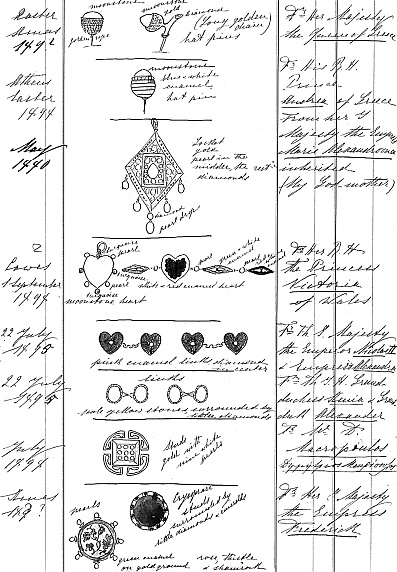 Easter
Athens
1892
moonstone
golden rope
moonstone
gold
diamond
(Long golden
chain)
hat pins
Fr Her Majesty
the Queen of Greece
Athens
Easter
1894
moonstone
blue & white
enamel
hat pin
Fr His R. H.
Prince
Andrea of Greece
May
1880
Locket
gold
pearl in the
middle, the rest
diamonds
ancient
pearl drops
From her I
Majesty the Empress
Marie Alexandrovna
inherited
(My God mother)
Cowes
September
1894
turquoise
pearl
turquoise
pearl
turquoise
moonstone heart
white & red enamel heart
pearl
green & white
enamel
Fr Her R H
the Princess
Victoria
of Wales
22 July
1895
pink enamel links diamond
in center
Fr Th I. Majesty
the Emperor Nicolas II
& Empress Alexandra
22 July
1895
links
pale yellow stones surrounded by
little diamonds
Fr Th I H Grand
duchess Xenia & Grand
duke Alexander
July
1894
Studs
gold with
nine white
pearls
Fr Mr
Macropoulos
189?
pearls
Crysoprase
studs
surrounded by
little diamonds & emeralds
green enamel
on gold ground
rose, thistle
& shamrock
Fr Her I Majesty
the Empress
Frederick